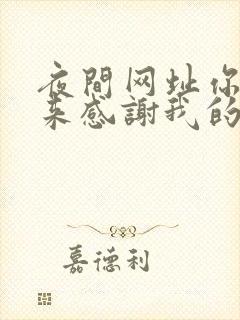 夜間网址你
来感謝我的
嘉德利